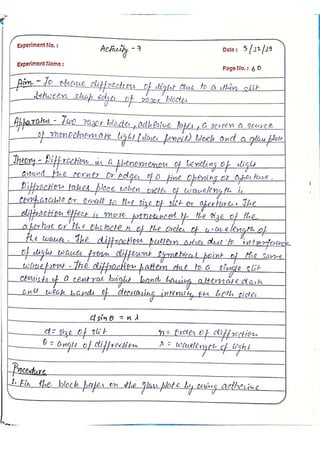 Experiment No. :
Activity - 7
Date : 5/12/19
Experiment Name :
Page No. : 60
Aim - To observe diffraction of light due to a thin slit
between sharp edges of razor blades
Apparatus - Two razor blades, adhesive tapes, a screen a source
of monochromatic light (laser pencil) black and a glass plate
Theory - Diffraction is a phenomenon of bending of light
around the corner or edges of a fine opening or aperture.
Diffraction takes place when order of wavelength is
comparable or small to the size of slit or aperture. The
diffraction effect is more pronounced if the size of the
aperture or the obstacle is of the order of wavelength of
the waves. The diffraction pattern arises due to interference
of light waves from different symetrical point of the same
wavefront. The diffraction pattern due to a single slit
consists of a central bright band having alternate dark
and weak bands of decreasing intensity on both sides.
d sinθ = nλ
d = size of slit n = order of diffraction
θ = angle of diffraction λ = wavelength of light
Procedure
1. Fix the black paper on the glass plate by using adhesive